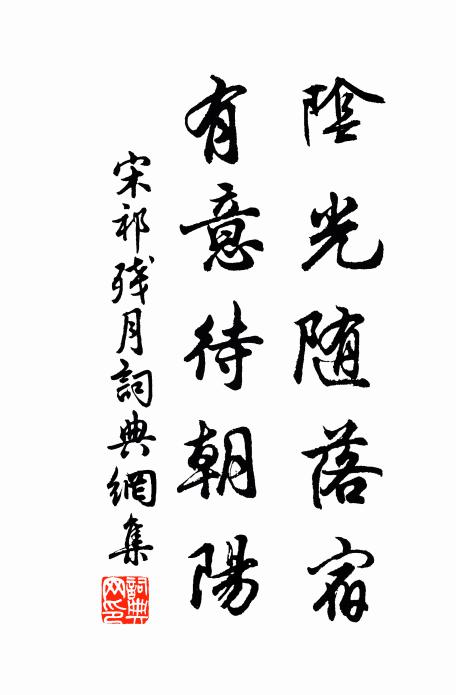 陰光随落宿
有意待朝陽
宋祁殘月詞典網集
詞典
网印